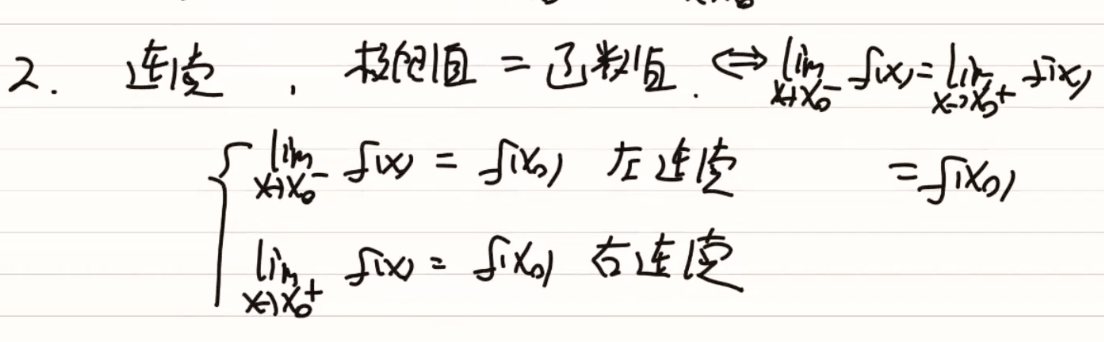 2. 连续, 极限值 = 函数值. ⇔ lim x→x₀⁻ f(x) = lim x→x₀⁺ f(x)
{ lim x→x₀⁻ f(x) = f(x₀) 左连续 = f(x₀)
lim x→x₀⁺ f(x) = f(x₀) 右连续